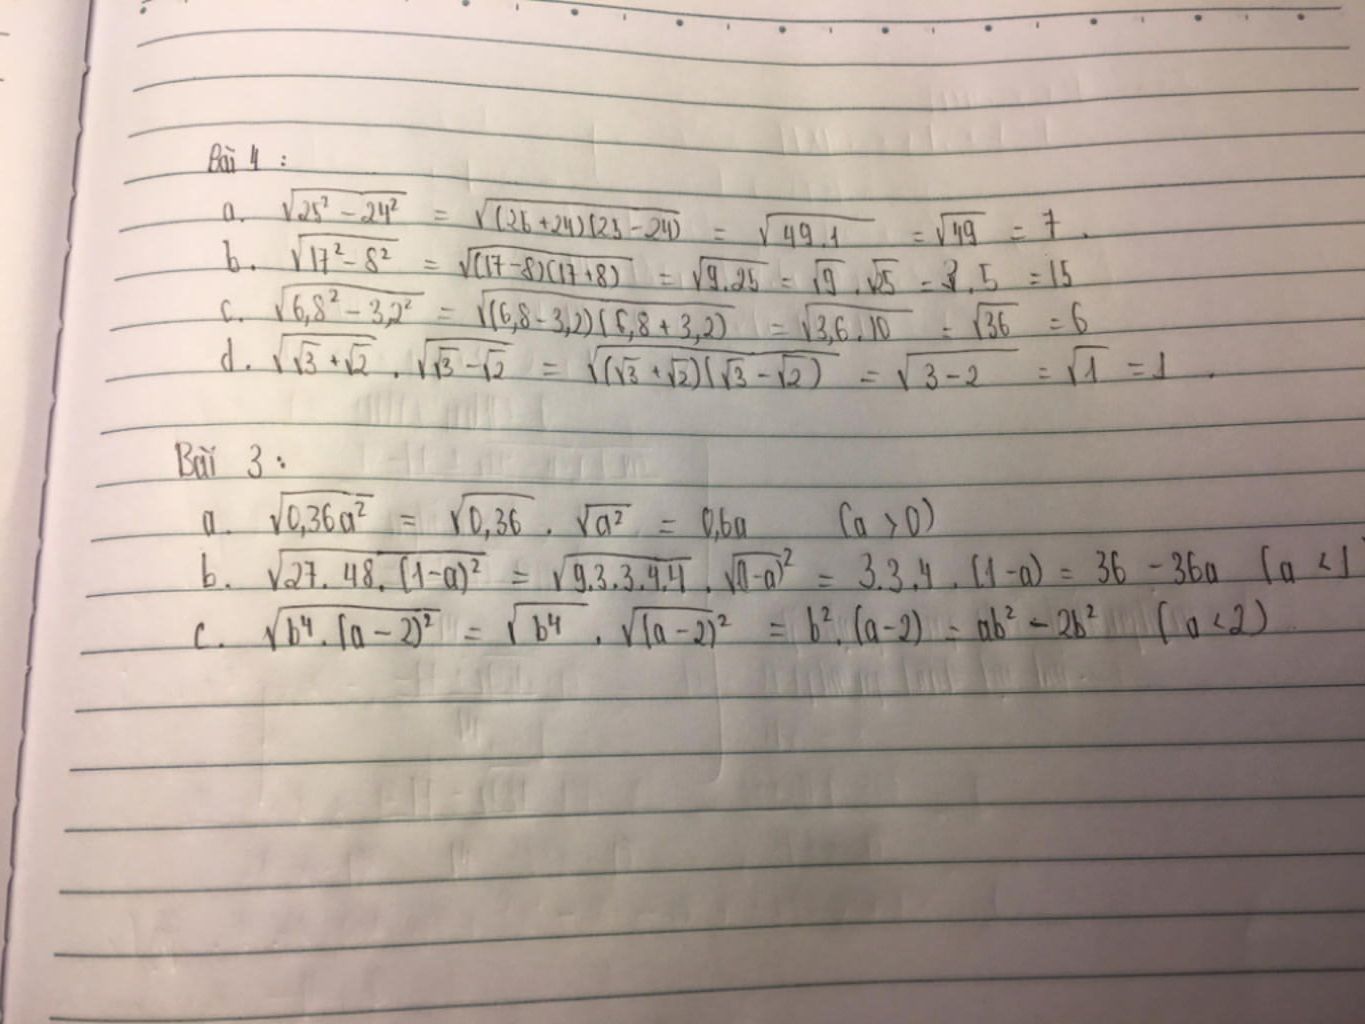 Bài 4 :
a. √(25² − 24²) = √((25+24)(25−24)) = √(49.1) = √49 = 7.
b. √(17² − 8²) = √((17−8)(17+8)) = √(9.25) = √9 . √25 = 3.5 = 15
c. √(6,8² − 3,2²) = √((6,8−3,2)(6,8+3,2)) = √(3,6.10) = √36 = 6
d. √(√3+√2) . √(√3−√2) = √((√3+√2)(√3−√2)) = √(3−2) = √1 = 1.
Bài 3 :
a. √(0,36a²) = √0,36 . √a² = 0,6a (a > 0)
b. √(27.48.(1−a)²) = √(9.3.3.4.4) . √(1−a)² = 3.3.4.(1−a) = 36 − 36a (a < 1
c. √(b⁴.(a−2)²) = √b⁴ . √(a−2)² = b².(a−2) = ab² − 2b² (a < 2)